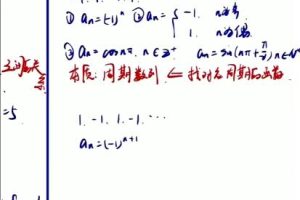 ① aₙ=(-1)ⁿ ② aₙ={ -1. n为奇
1. n为偶.
③ aₙ=cosnπ. n∈Z⁺ aₙ=sin(nπ+π/2) n∈N*
本质: 周期数列 ⇐ 找对应周期的函数
=5
1. -1. 1. -1. ...
aₙ=(-1)ⁿ⁺¹